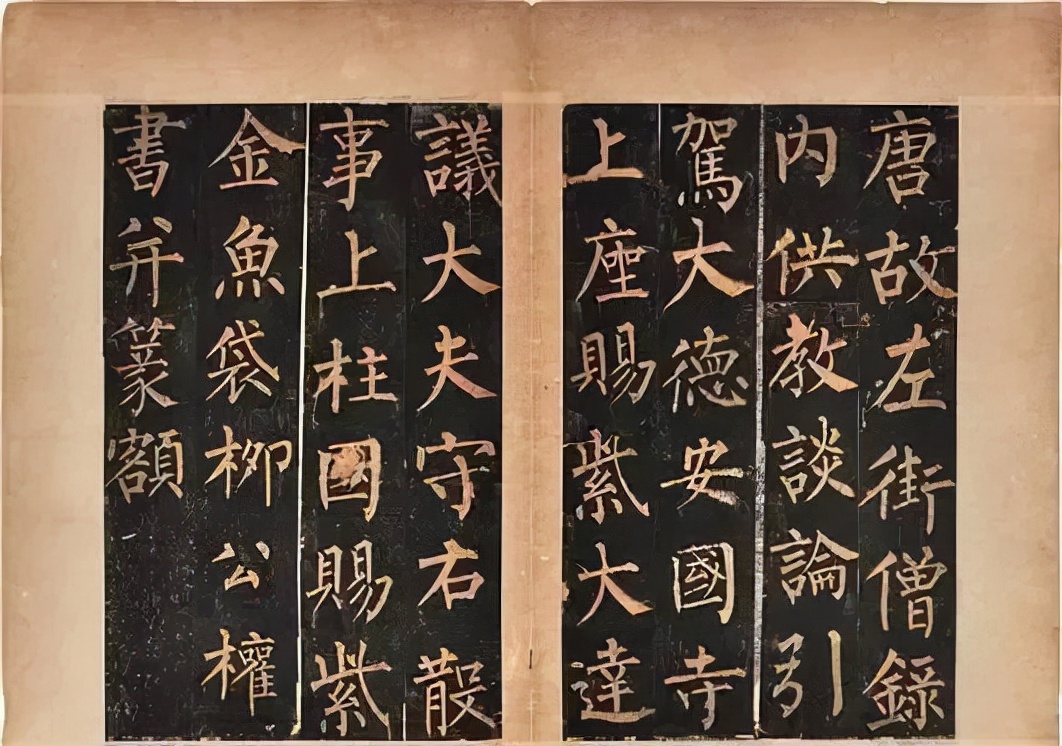 唐故左街僧録
内供教談論引
駕大德安國寺
上座賜紫大達
議大夫守右散
事上柱國賜紫
金魚袋柳公權
書并篆額